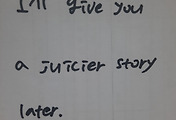 I'll give you
a juicier story
later.